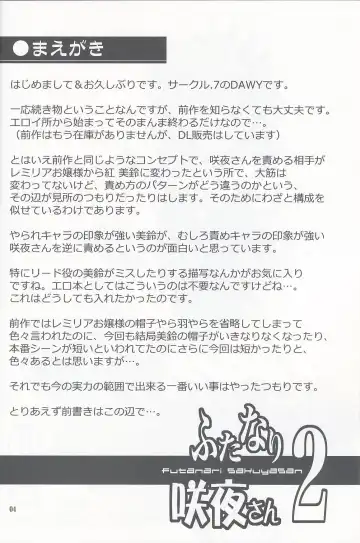 ●まえがき
はじめまして＆お久しぶりです。サークル,7のDAWYです。
一応続き物ということなんですが、前作を知らなくても大丈夫です。
エロイ所から始まってそのまんま終わるだけなので…。
（前作はもう在庫がありませんが、DL販売はしています）
とはいえ前作と同じようなコンセプトで、咲夜さんを責める相手が
レミリアお嬢様から紅 美鈴に変わったという所で、大筋は
変わってないけど、責め方のパターンがどう違うのかという、
その辺が見所のつもりだったりはします。そのためにわざと構成を
似せているわけであります。
やられキャラの印象が強い美鈴が、むしろ責めキャラの印象が強い
咲夜さんを逆に責めるというのが面白いと思っています。
特にリード役の美鈴がミスしたりする描写なんかがお気に入り
ですね。エロ本としてはこういうのは不要なんですけどね…。
これはどうしても入れたかったのです。
前作ではレミリアお嬢様の帽子やら羽やらを省略してしまって
色々言われたのに、今回も結局美鈴の帽子がいきなりなくなったり、
本番シーンが短いといわれてたのにさらに今回は短かったりと、
色々あるとは思いますが…。
それでも今の実力の範囲で出来る一番いい事はやったつもりです。
とりあえず前書きはこの辺で…。
ふたなり
futanari sakuyasan
咲夜さん
2
04